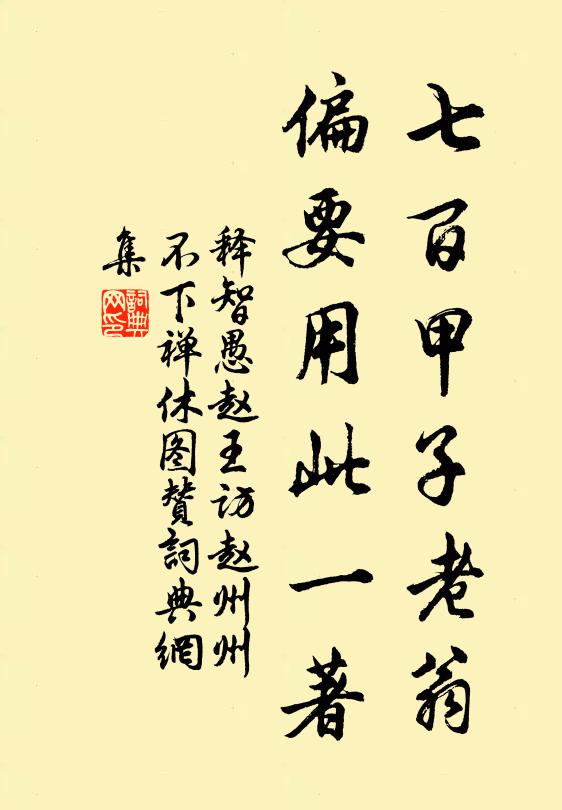 七百甲子老翁
偏要用此一著
释智愚赵王访赵州州
不下禅休图赞詞典網
集
詞典网印